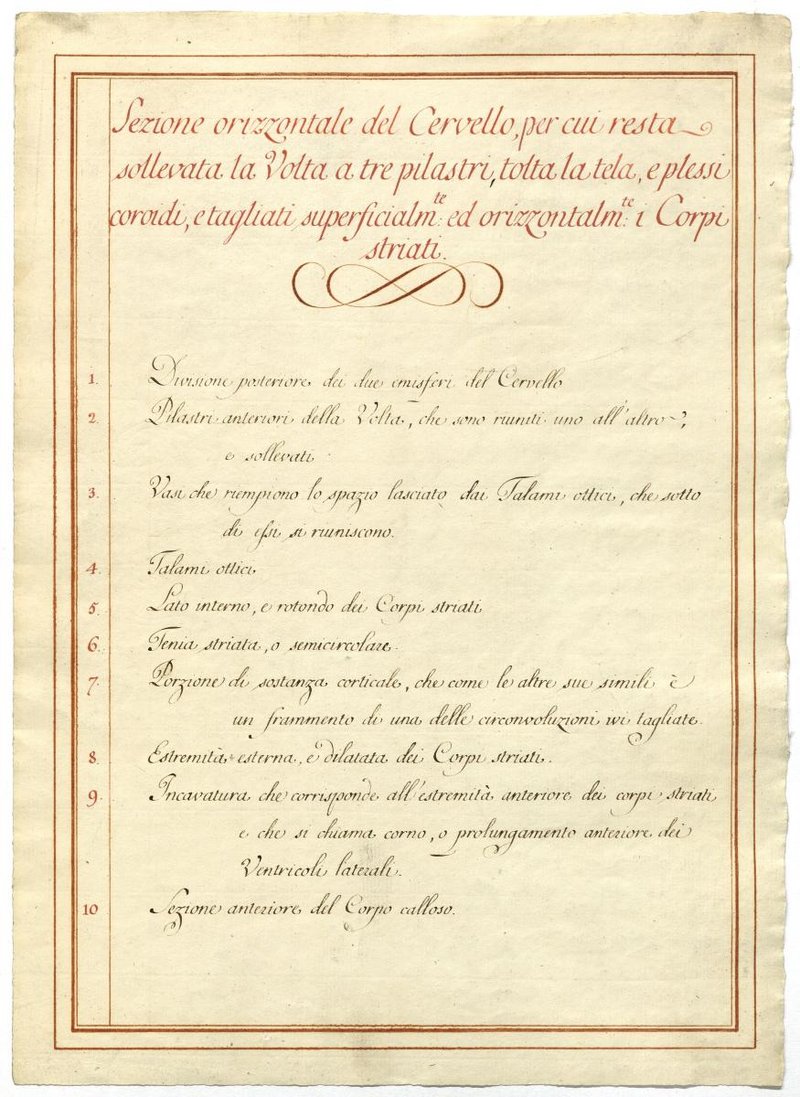 Sezione orizzontale del Cervello, per cui resta
sollevata la Volta a tre pilastri, tolta la tela, e plessi
coroidi, e tagliati superficialm:te ed orizzontalm:te i Corpi
striati.
1. Divisione posteriore dei due emisferi del Cervello
2. Pilastri anteriori della Volta, che sono riuniti uno all'altro,
e sollevati
3. Vasi che riempiono lo spazio lasciato dai Talami ottici, che sotto
di essi si riuniscono.
4. Talami ottici
5. Lato interno, e rotondo dei Corpi striati
6. Tenia striata, o semicircolare.
7. Porzione di sostanza corticale, che come le altre sue simili è
un frammento di una delle circonvoluzioni ivi tagliate.
8. Estremità esterna, e dilatata dei Corpi striati.
9. Incavatura che corrisponde all'estremità anteriore dei corpi striati
e che si chiama corno, o prolungamento anteriore dei
Ventricoli laterali.
10 Sezione anteriore del Corpo calloso.